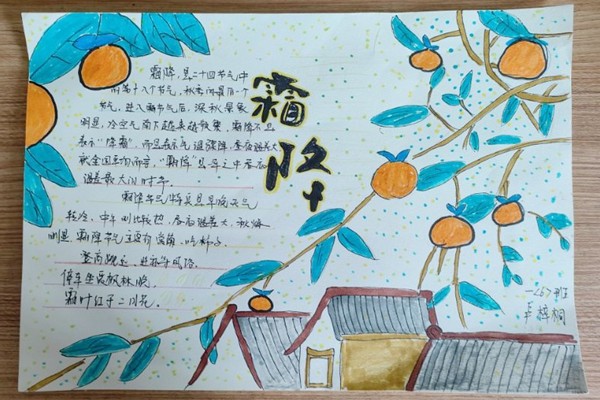 霜降
霜降,是二十四节气中
的第十八个节气,秋季的最后一个
节气,进入霜节气后,深秋景象
明显,冷空气南下越来越频繁,霜降不是
表示“降霜”,而是表示气温骤降,昼夜温差大
就全国平均而言,“霜降”是一年之中昼夜
温差最大的时节。
霜降节气特点是早晚天气
较冷,中午则比较热,昼夜温差大,秋燥
明显。霜降节气主要有赏菊、吃柿子、
登高
停车坐爱枫林晚,
霜叶红于二月花。
一(6)班
梓桐